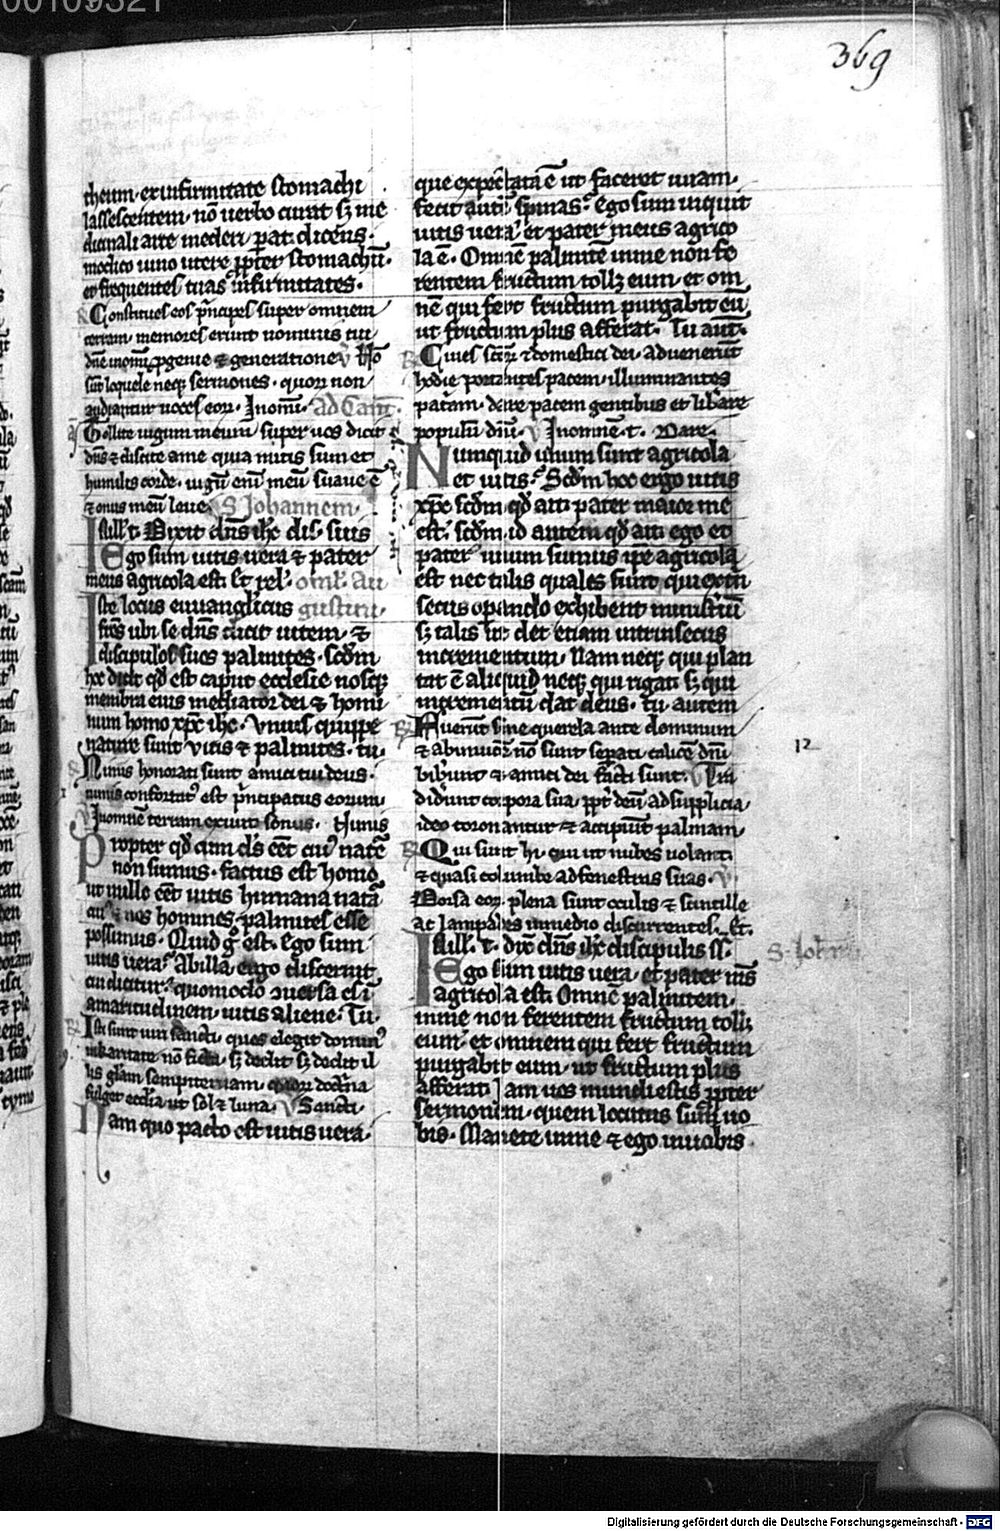 369
theum. ex infirmitate stomachi
lassescentem. nō uerbo curat sꝫ me
dicinali arte mederi. parat dicens.
modico uino utere ꝓpter stomachū.
et frequentes tuas infirmitates.
℟ Constitues eos p̄ncipes super omnem
terram. memores erunt nominis tui
dn̄e in om̄i ꝓgenie ⁊ generatione. ℣ Nō
sūt loquele neqꝫ sermones. quoꝝ non
audiantur uoces eoꝝ. In om̄i. ad Cant̄.
Tollite iugum meum super uos dicit
dn̄s ⁊ discite a me quia mitis sum et
humilis corde. iugū eni meū suaue ē
⁊ onus meū leue. S Johannem.
In ill̄. t. Dixit dn̄s ihc̄ dis. suis
Ego sum uitis uera ⁊ pater
meus agricola est. Et rel̄. oml̄. Au
Iste locus euuangl̄icus gustini.
fr̄es ubi se dn̄s dicit uitem. ⁊
discipulos suos palmites. scd̄m
hoc dicit qd̄ est caput ecclesie nosqꝫ
membra eius mediator dei ⁊ homi
num homo xp̄c ihc̄. Vnius quippe
nature sunt uitis ⁊ palmites. tu.
℟ Nimis honorati sunt amici tui deus.
nimis confortatꝰ est p̄ncipatus eorum.
℣ In omnē terram exiuit sonus. Nimis
Propter qd̄ cum ds̄ eēt cuiꝰ natē
non sumus. factus est homo
ut in illo eēt uitis humana natā
cuiꝰ ⁊ nos homines palmites esse
possimus. Quid g̊ est. Ego sum
uitis uera. Ab illa ergo discernit
cui dicitur. quomodo ꝯuersa es ī
amaritudinem. uitis aliene. Tu.
℟ Isti sunt uiri sancti. ques elegit dominꝰ
in karitate nō ficta. sꝫ dedit il
lis glām sempiternam. quoꝝ doctͥna
fulget eccl̄ia ut sol ⁊ luna. ℣ Sancti.
Nam quo pacto est uitis uera.
que expectata ē ut faceret uuam.
fecit autē spinas. Ego sum inquit
uitis uera et pater meus agrico
la ē. Omnē palmitē in me non fe
rentem fructum tollꝫ eum. et om
nē qui fert fructum purgabit eū
ut fructum plus afferat. Tu aut̄.
℟ Ciues sc̄oꝝ ⁊ domestici dei. aduenerūt
hodie portantes pacem. illuminantes
patriam. dare pacem gentibus et liberare
populū dn̄i. ℣ In omnē. t. Dare.
Numquid unum sunt agricola
et uitis. Scd̄m hoc ergo uitis
xp̄c scd̄m qd̄ ait pater maior me
est. scd̄m id autem qd̄ ait ego et
pater unum sumus ip̄e agricola
est nec talis quales sunt qui extrī
secus operando exhibent ministiū
sꝫ talis ut det etiam intrinsecus
incrementum. Nam neqꝫ qui plan
tat ē aliquid neqꝫ qui rigat sꝫ qui
incrementū dat deus. tu. autem
℟ Fuerūt sine querela ante dominum
⁊ ab inuicē nō sunt separati. calicē dn̄i
biberunt ⁊ amici dei facti sunt. ℣ Tra
diderunt corpora sua. ꝓpt̄ deū ad supplicia
ideo coronantur ⁊ accipiūt palmam.
℟ Qui sunt hi. qui ut nubes uolant
⁊ quasi columbe ad fenestras suas. ℣
Dorsa eoꝝ. plena sunt oculis ⁊ scintille
ac lampades in medio discurrentes. Et.
In ill̄. t. dix̄ dn̄s ihc̄ discipulis ss̄.
Ego sum uitis uera. et pater m̄s
agricola est. Omnē palmitem.
in me non ferentem fructum tollꝫ
eum. et omnem qui fert fructum
purgabit eum. ut fructum plus
afferat. Iam uos mundi estis ꝓpter
sermonem. quem locutus sum uo
bis. Manete in me ⁊ ego in uobis.
12
S. Joh̄em
Digitalisierung gefördert durch die Deutsche Forschungsgemeinschaft - DFG